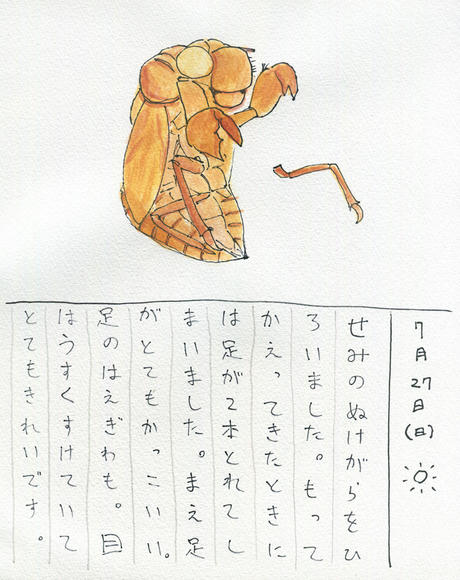 7月27日(日)
せみのぬけがらをひ
ろいました。もって
かえってきたときに
は足が2本とれてし
まいました。まえ足
がとてもかっこいい。
足のはえぎわも。目
はうすくすけていて
とてもきれいです。